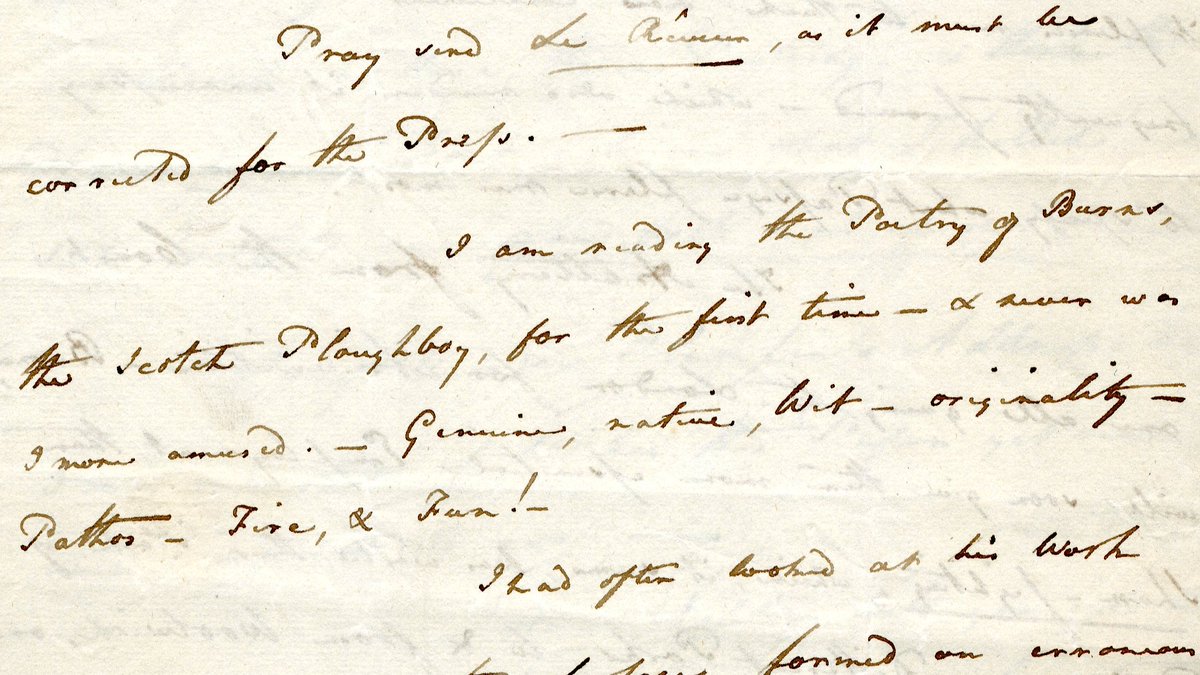 Pray send Le Rêveur, as it must be
corrected for the Press. —
I am reading the Poetry of Burns,
the Scotch Ploughboy, for the first time — & never was
I more amused. — Genuine, native, Wit — originality —
Pathos — Fire, & Fun! —
I had often looked at his Work
formed an erroneous